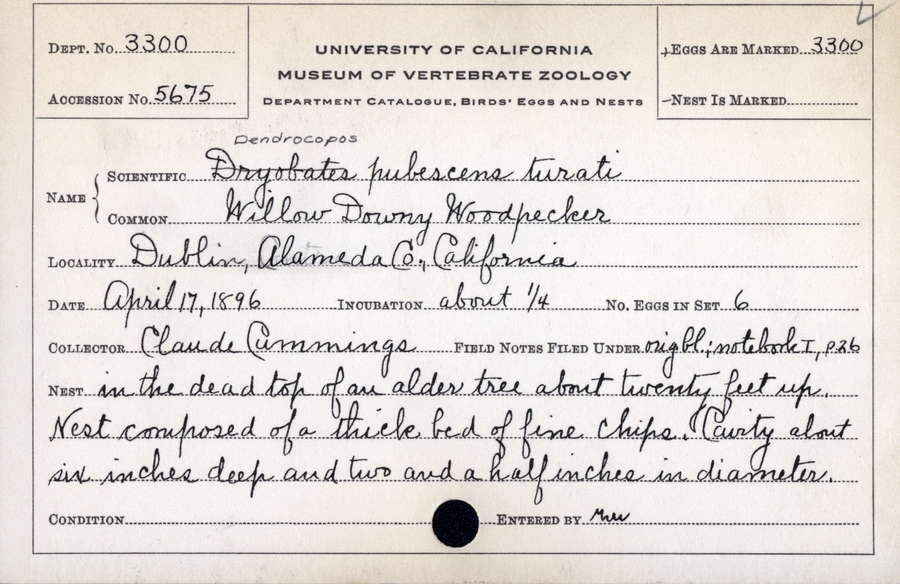 Dept. No. 3300
University of California
Museum of Vertebrate Zoology
Department Catalogue, Birds' Eggs and Nests
+Eggs Are Marked 3300
Accession No. 5675
–Nest Is Marked
Dendrocopos
Name { Scientific Dryobates pubescens turati
Common Willow Downy Woodpecker
Locality Dublin, Alameda Co., California
Date April 17, 1896 Incubation about 1/4 No. Eggs in Set 6
Collector Claude Cummings Field Notes Filed Under orig bl.; notebook I, p26
Nest in the dead top of an alder tree about twenty feet up.
Nest composed of a thick bed of fine chips. Cavity about
six inches deep and two and a half inches in diameter.
Condition Entered by